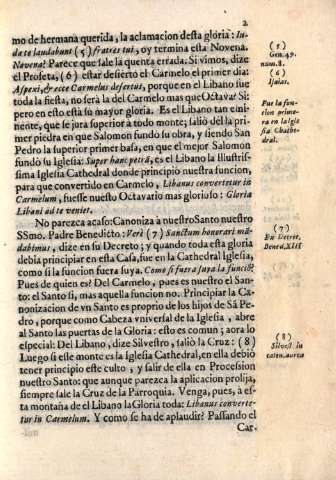 2
mo de hermana querida, la aclamacion desta gloria: Iu-
da te laudabunt (5) fratres tui, oy termina esta Novena.
Novena? Parece que sale la quenta errada. Si vimos, dize
el Profeta, (6) estar desierto el Carmelo el primer dia:
Aspexi, & ecce Carmelus desertus, porque en el Libano fue
toda la fiesta, no será la del Carmelo mas que Octava! Si;
pero en esto està su mayor gloria. Es el Libano tan emi-
nente, que se jura superior à todo monte; saliò del la pri-
mer piedra en que Salomon fundò su obra, y siendo San
Pedro la superior primer basa, en que el mejor Salomon
fundò su Iglesia: Super hanc petrã, es el Libano la Illustris-
sima Iglesia Cathedral donde principio nuestra funcion,
para que convertido en Carmelo, Libanus convertetur in
Carmelum, fuesse nuesto Octavario mas glorioso: Gloria
Libani ad te veniet.
No parezca acaso: Canoniza à nuestro Santo nuestro
SSmo. Padre Benedicto: Verè (7) Sanctum honorari mã-
dabimus, dize en su Decreto; y quando toda esta gloria
debia principiar en esta Casa, fue en la Cathedral Iglesia,
como si la funcion fuera suya. Como si fuera suya la funciõ?
Pues de quien es? Del Carmelo, pues es nuestro el San-
to: el Santo si, mas aquella funcion no. Principiar la Ca-
nonizacion de vn Santo es proprio de los hijos de Sã Pe-
dro, porque como Cabeza vniversal de la Iglesia, abre
al Santo las puertas de la Gloria: esto es comun; aora lo
especial: Del Libano, dize Silvestro, saliò la Cruz: (8)
Luego si esse monte es la Iglesia Cathedral, en ella debiò
tener principio este culto, y salir de ella en Procession
nuestro Santo: que aunque parezca la aplicacion prolija,
siempre sale la Cruz de la Parroquia. Venga, pues, à es-
ta montaña de el Libano la Gloria toda: Libanus converte-
tur in Carmelum. Y como se ha de aplaudir? Passando el
Car-
(5)
Gen. 49.
num. 8.
(6)
Isaias.
Fue la fun-
cion prime-
ra en la Igle
sia Cathe-
dral.
(7)
En Decret.
Bened. XIII
(8)
Silvest. in
caten. aurea